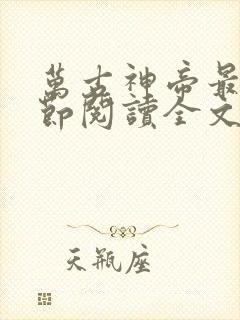 萬古神帝最
節閱讀全文
天瓶座